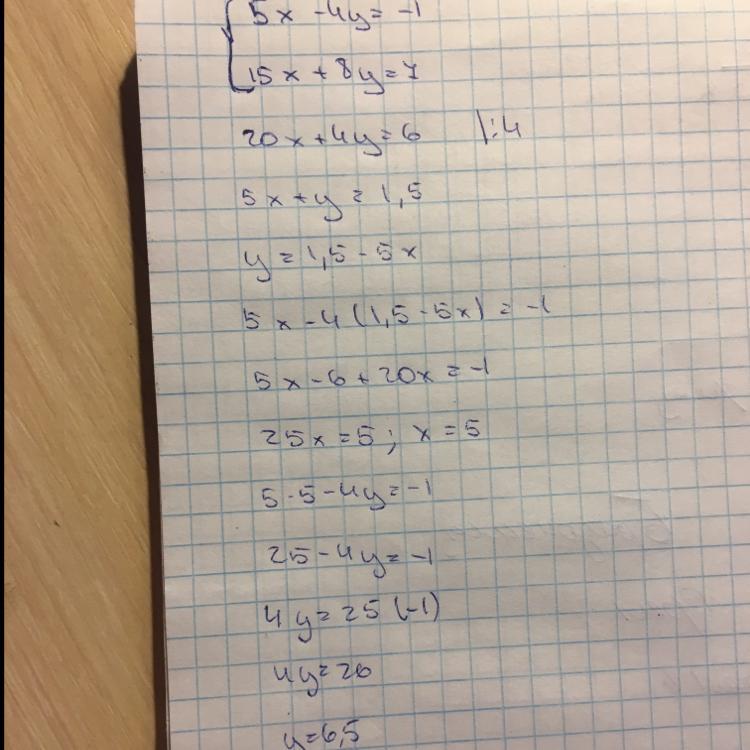 5x - 4y = -1
15x + 8y = 7
20x + 4y = 6 |:4
5x + y = 1,5
y = 1,5 - 5x
5x - 4(1,5 - 5x) = -1
5x - 6 + 20x = -1
25x = 5; x = 5
5·5 - 4y = -1
25 - 4y = -1
4y = 25 (-1)
4y = 26
y = 6,5